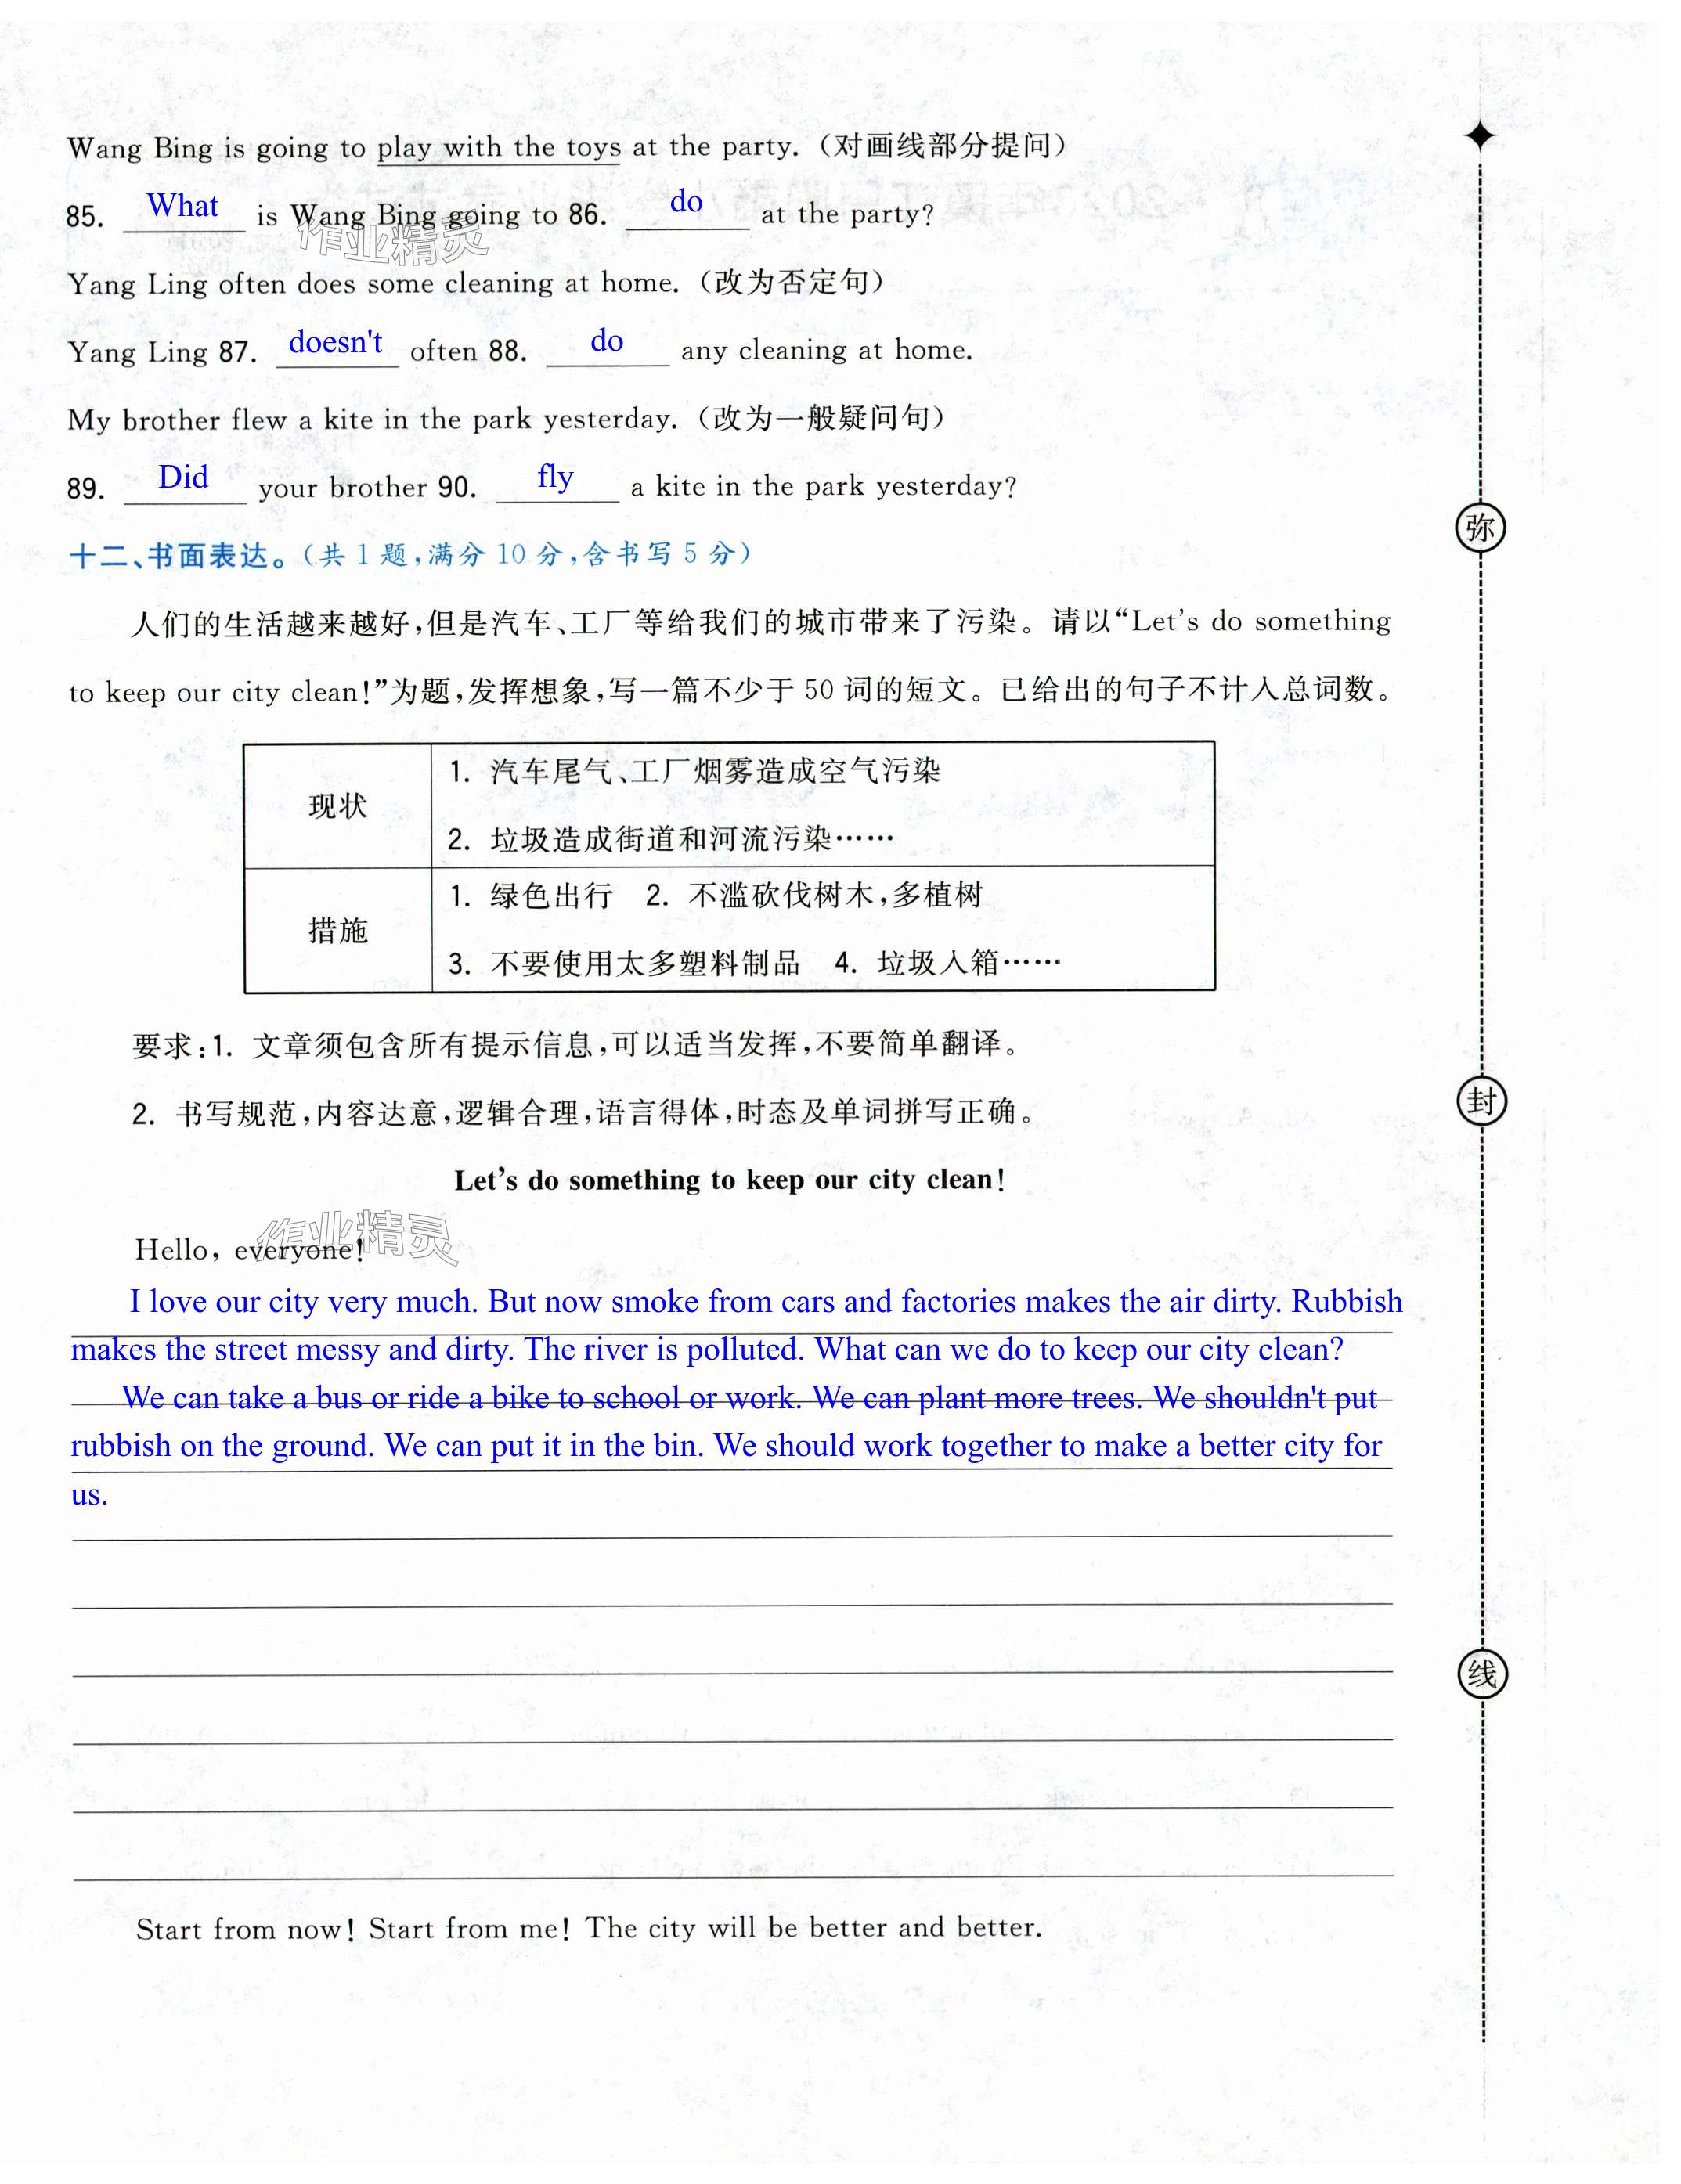 Wang Bing is going to play with the toys at the party.(对画线部分提问)
85. What is Wang Bing going to 86. do at the party?
作业精灵
Yang Ling often does some cleaning at home.(改为否定句)
Yang Ling 87. doesn't often 88. do any cleaning at home.
My brother flew a kite in the park yesterday.(改为一般疑问句)
89. Did your brother 90. fly a kite in the park yesterday?
十二、书面表达。(共 1 题,满分 10 分,含书写 5 分)
人们的生活越来越好,但是汽车、工厂等给我们的城市带来了污染。请以“Let's do something
to keep our city clean!”为题,发挥想象,写一篇不少于 50 词的短文。已给出的句子不计入总词数。
现状
1. 汽车尾气、工厂烟雾造成空气污染
2. 垃圾造成街道和河流污染……
措施
1. 绿色出行 2. 不滥砍伐树木,多植树
3. 不要使用太多塑料制品 4. 垃圾入箱……
要求:1. 文章须包含所有提示信息,可以适当发挥,不要简单翻译。
2. 书写规范,内容达意,逻辑合理,语言得体,时态及单词拼写正确。
Let's do something to keep our city clean!
Hello, everyone!
作业精灵
I love our city very much. But now smoke from cars and factories makes the air dirty. Rubbish
makes the street messy and dirty. The river is polluted. What can we do to keep our city clean?
We can take a bus or ride a bike to school or work. We can plant more trees. We shouldn't put
rubbish on the ground. We can put it in the bin. We should work together to make a better city for
us.
Start from now! Start from me! The city will be better and better.
弥
封
线